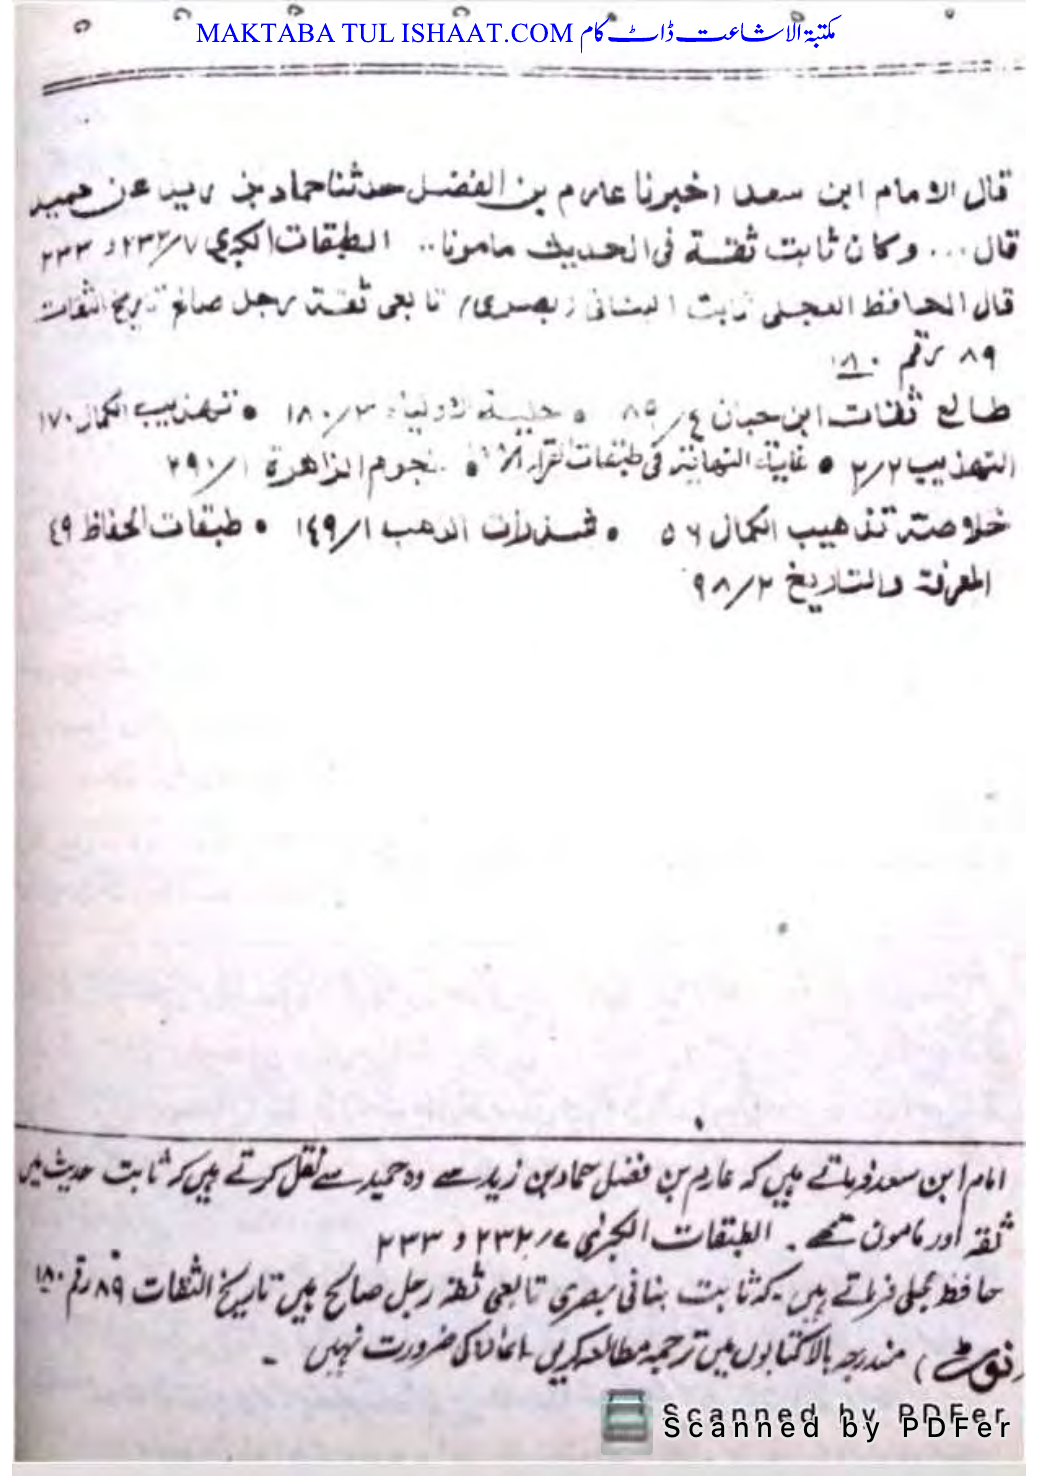 MAKTABA TUL ISHAAT.COM مکتبۃ الاشاعت ڈاٹ کام
قال الامام ابن سعد اخبرنا عارم بن الفضل حدثنا حماد بن زید عن حمید
قال ... وکان ثابت ثقۃ فی الحدیث مامونا .. الطبقات الکبری ۷/۲۳۲ و ۲۳۳
قال الحافظ العجلی ثابت البنانی بصری تابعی ثقۃ رجل صالح تاریخ الثقات
۸۹ رقم ۱۸۰
طالع ثقات ابن حبان ٤/۸۹ • حلیۃ الاولیاء ۲/۱۸۰ • تہذیب الکمال ۱۷۰
التہذیب ۲/۲ • غایۃ النہایۃ فی طبقات القراء • نجوم الزاہرۃ ۱/۲۹۱
خلاصۃ تذہیب الکمال ۵۶ • شذرات الذہب ۱/۱٤۹ • طبقات الحفاظ ٤۹
المعرفۃ والتاریخ ۲/۹۸
امام ابن سعد فرماتے ہیں کہ عارم بن فضل حماد بن زید سے وہ حمید سے نقل کرتے ہیں کہ ثابت حدیث میں
ثقہ اور مامون تھے ۔ الطبقات الکبریٰ ۷/۲۳۲ و ۲۳۳
حافظ عجلی فرماتے ہیں کہ ثابت بنانی بصری تابعی ثقہ رجل صالح ہیں تاریخ الثقات ۸۹ رقم ۱۸۰
(نوٹ) مندرجہ بالا کتابوں میں ترجمہ مطالعہ کریں کی ضرورت نہیں ۔
Scanned by PDFer